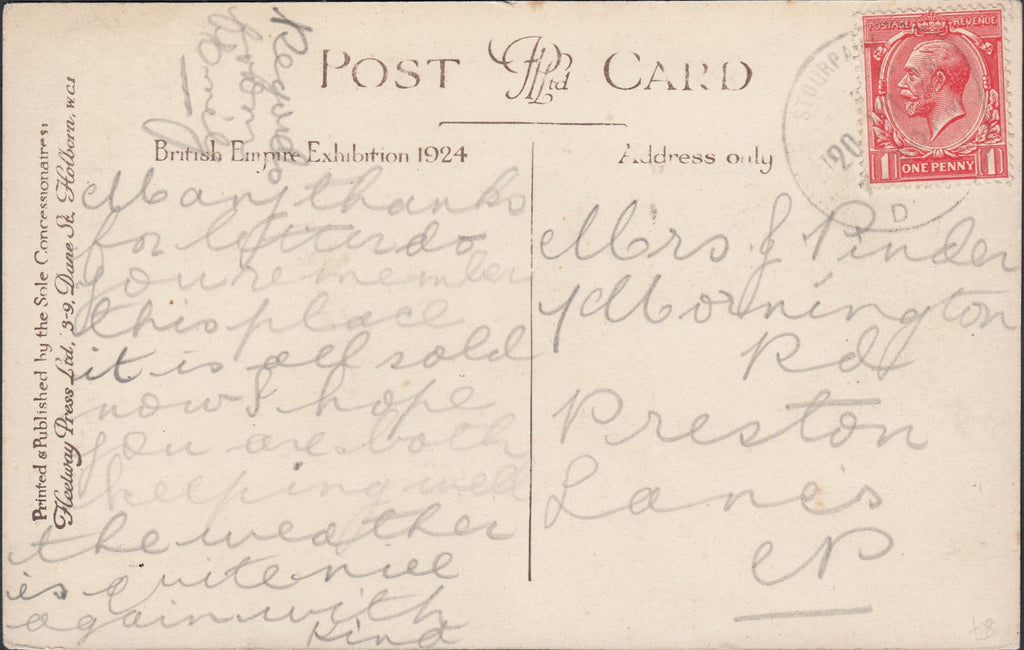 POST CARD
British Empire Exhibition 1924
Address only
Printed & Published by the Sole Concessionaires:
Fleetway Press Ltd, 3-9, Dane St, Holborn, WC1
POSTAGE REVENUE
1 ONE PENNY 1
STOURPA
20
D
Many thanks
for letter do
you remember
this place
it is all sold
now I hope
you are both
keeping well
the weather
is quite nice
again with
kind
Regards
from
Mrs J Pinder
1 Mornington
Rd
Preston
Lancs